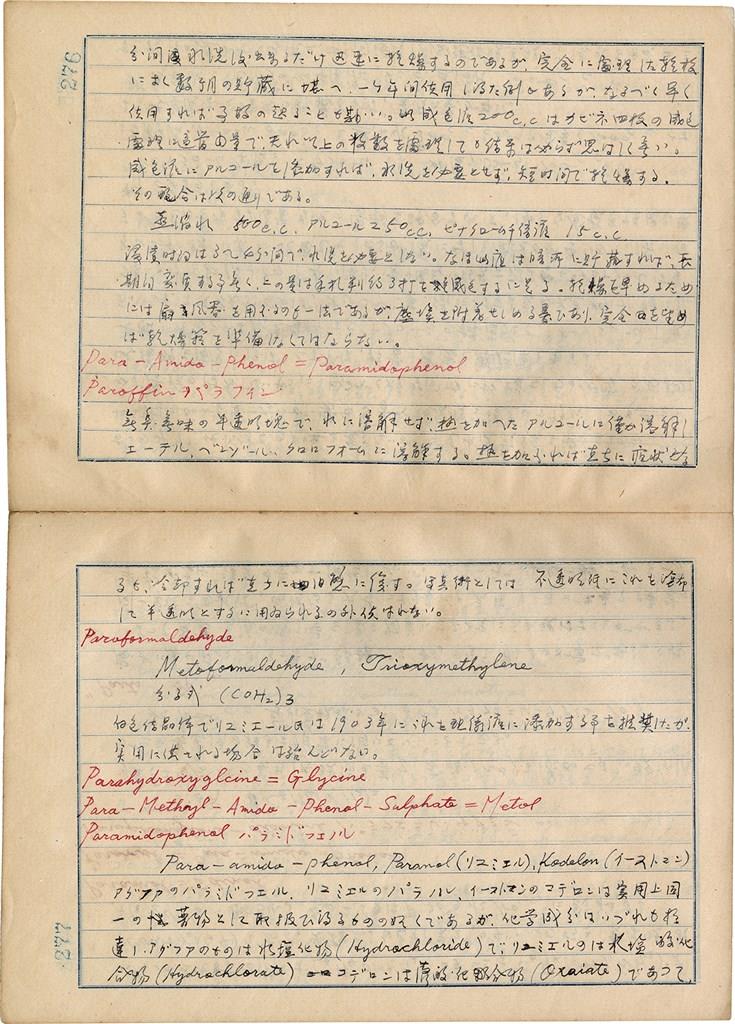 276
分間 水洗 後出来るだけ迅速に乾燥するのであるが、完全に処理した乾板
によく数ヶ月の貯蔵に堪へ、一ヶ年間使用し得た例もあるが、なるべく早く
使用すれば の起ることも勘い。此感色液200c,cはカビネ四枚の感色
処理に適当由量で、夫れ以上の枚数を処理しても結果は 思はしく無い。
感色液にアルコールを添加すれば、水洗を必要とせず、短時間で乾燥する。
その配合は次の通りである。
蒸溜水 500c.c. アルコール250cc, ピナクローム千倍液 15c.c.
浸漬時間は 四分間で、水洗を必要としない。なほ此液は暗所に貯蔵すれば、長
期間変質する事無く、上の量は手札判約3打を感色するに足る。乾燥を早めるため
には扇風器を用ふるのも一法であるが、塵埃を附着せしめる事あり、完全 を
ば乾燥箱を準備しなくてはならない。
Para-Amido-Phenol = Paramidophenol
Paraffin パラフィン
無臭、無味の半透明塊で、水に溶解せず、熱を加へたアルコールに僅か溶解し
エーテル、ベンゾール、クロロフォームに溶解する。熱を加ふれば直ちに 状となる
るも、冷却すれば直ちに に復す。写真術としては 不透明紙にこれを塗布
して半透明とするに用ゐられるの外使はれない。
Paraformaldehyde
Metaformaldehyde , Trioxymethylene
分子式 (COH₂)3
白色結晶体でリュミエール氏は1903年にこれを現像液に添加する事を推奨したが、
実用に供される場合は殆んどない。
Parahydroxyglcine = Glycine
Para-Methyl-Amido-Phenol-Sulphate = Metol
Paramidophenol パラミドフェノル
Para-amido-phenol, Paranol (リュミエル), Kodelon (イーストマン)
アグファのパラミドフェノル、リュミエルのパラノル、イーストマンのコデロンは実用上同
一の薬物として取扱ひ得るものの如くであるが、化学成分はいづれも相
違し、アグファのものは水塩化物(Hydrochloride)で、リュミエルのは水塩酸化
合物(Hydrochlorate) コデロンは蓚酸化合物(Oxalate)であって、
277